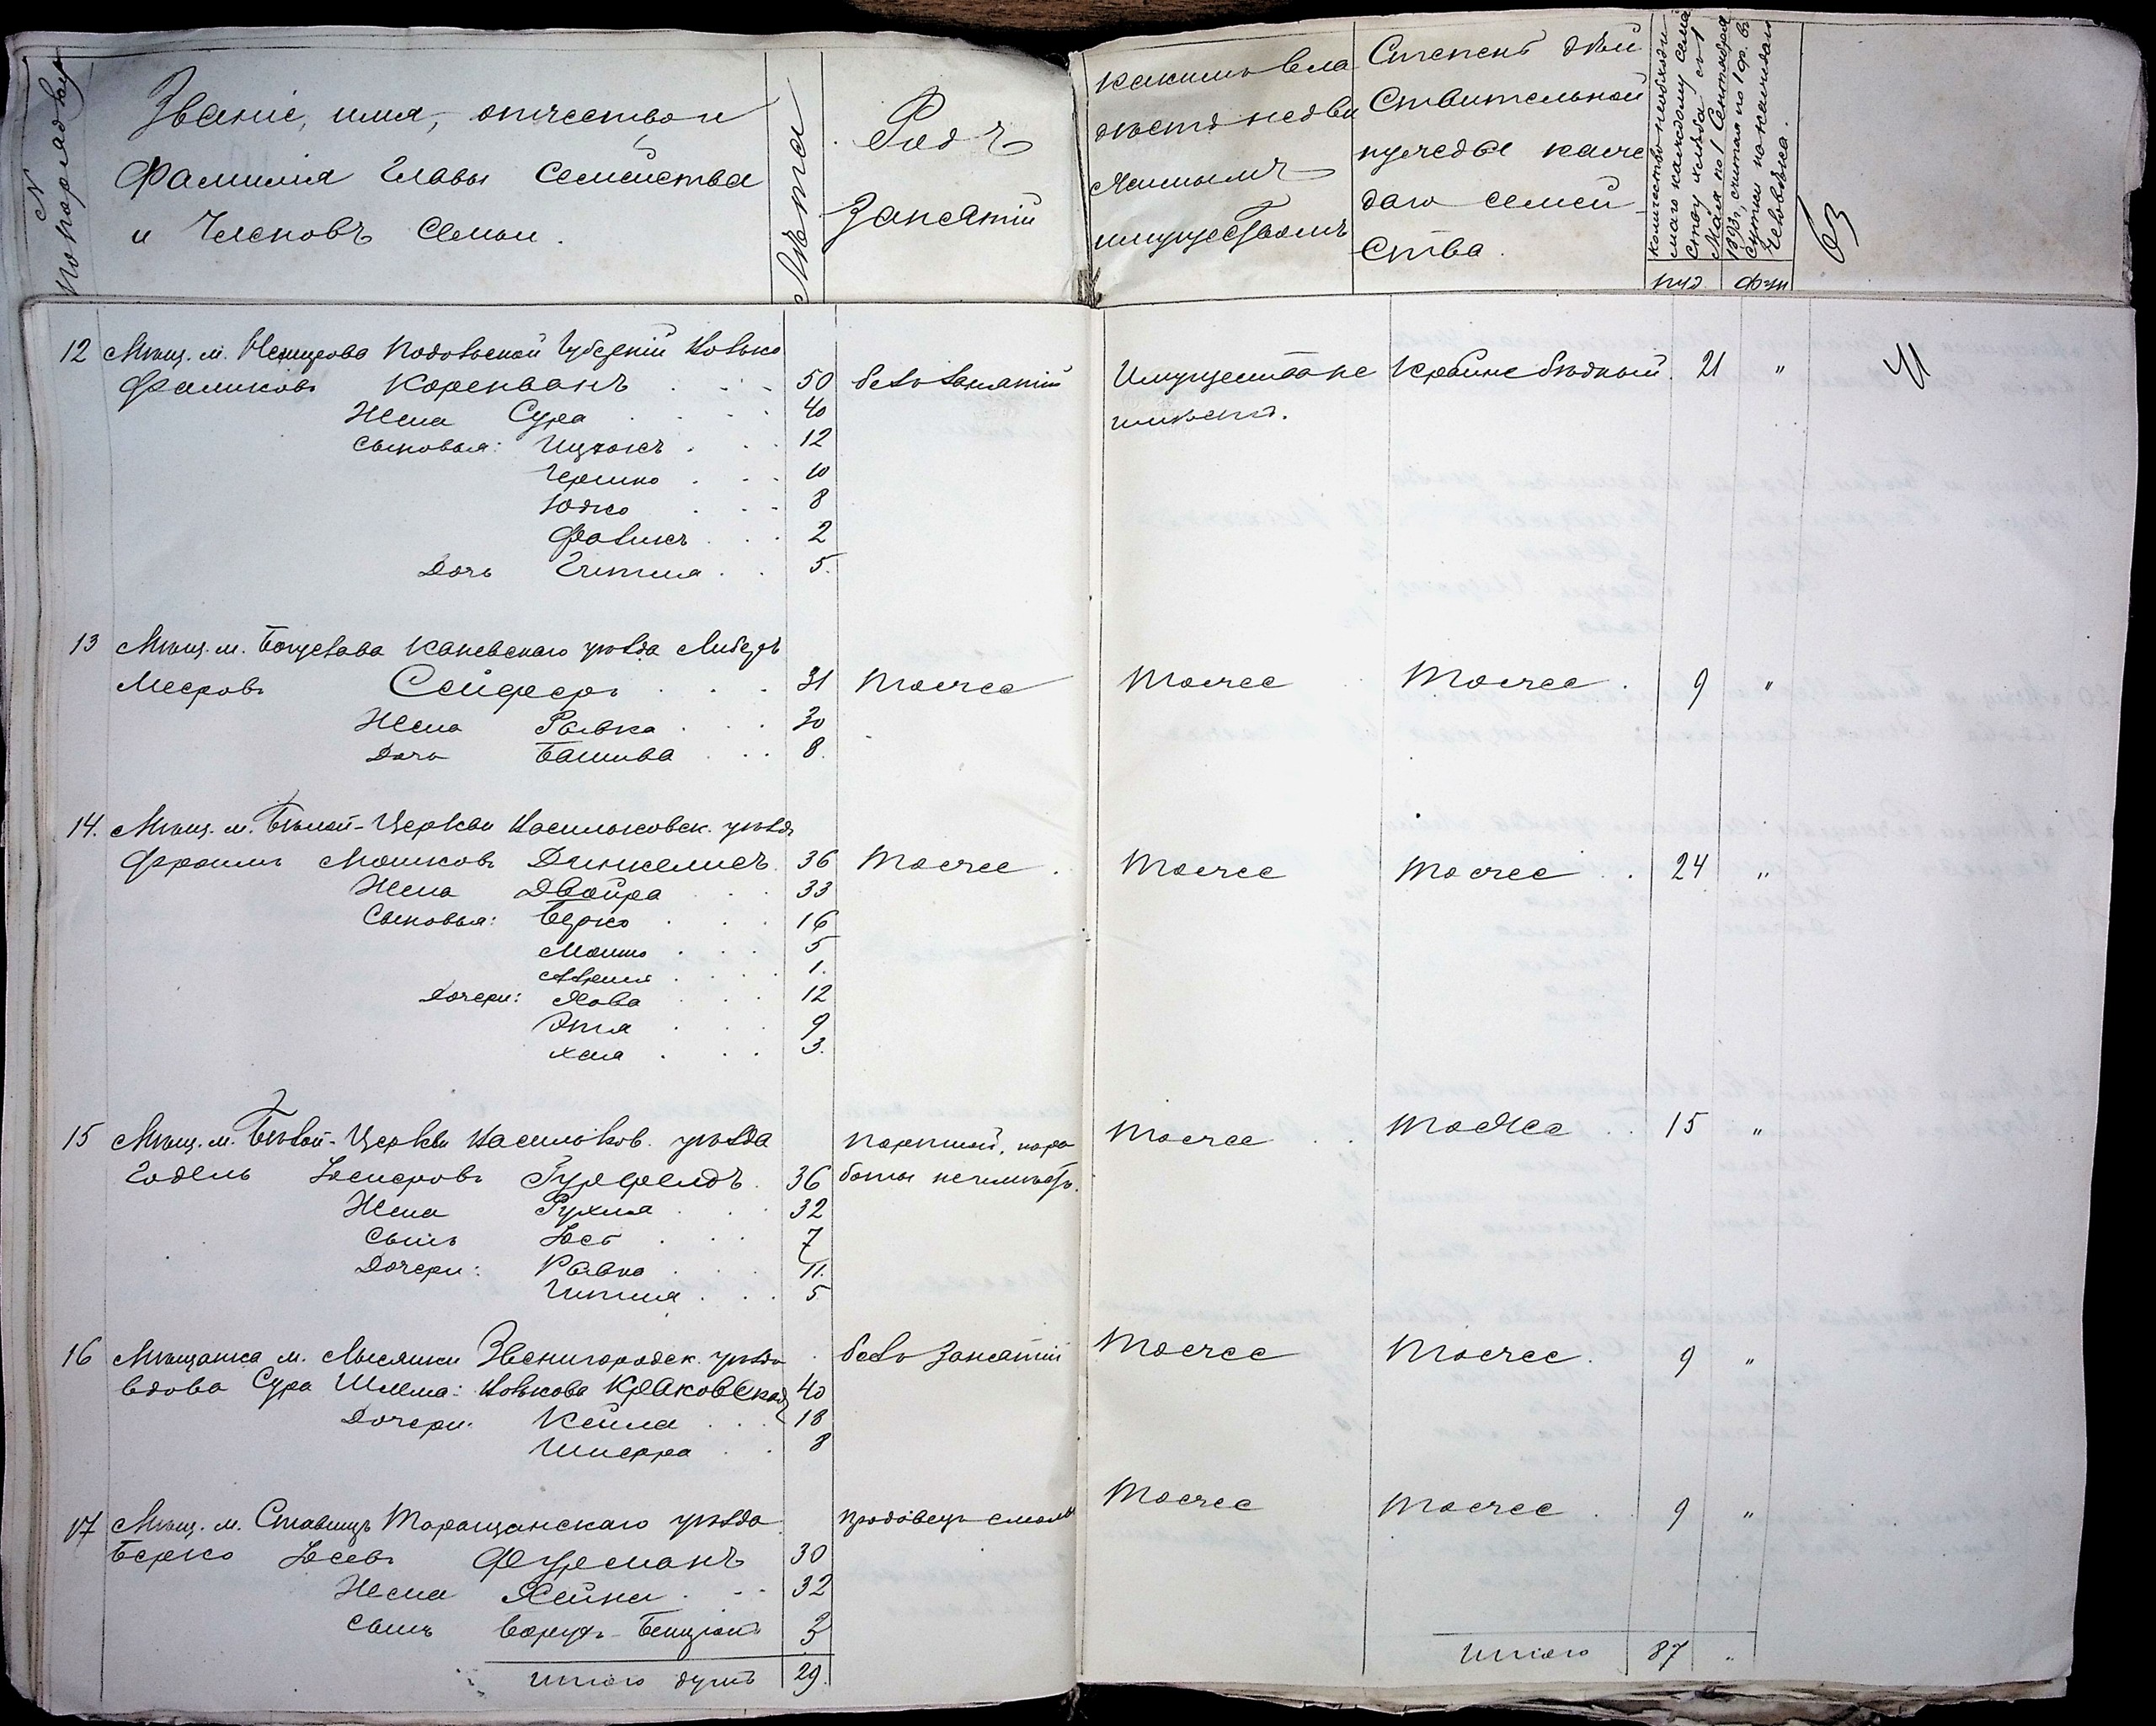 N по порядку
Званіе, имя, отчество и
Фамилія Главы Семейства
и Членовъ Семьи.
Лѣта
Родъ
Занятій
Какимъ вла
дѣетъ недви
жимымъ
имуществомъ
Степень дѣй
ствительной
нужды каж
даго семей
ства.
количество необходи
маго каждому семей
ству хлѣба съ 1
Мая по 1 Сентября
1893 г, считая по 1 ф. въ
сутки на каждаго
человѣка.
пуд ф-ти
63
12 Мѣщ. м. Немирова Подольской Губерніи Волько
Фроимовъ Коренванъ 50 безъ занятій Имущества не Крайне бѣдный. 21 "
имѣетъ.
Жена Сура 40
Сыновья: Ицхокъ 12
Гершко 10
Юдко 8
2
Дочь Гитля 5.
13 Мѣщ. м. Богуслава Каневскаго уѣзда Либеръ
Мееровъ Сейферъ 31 Тоже Тоже Тоже. 9 "
Жена Ривка 30
Дочь Башива 8.
14. Мѣщ. м. Бѣлой-Церкви Васильковск. уѣзда
Фроимъ Мошковъ 36 Тоже. Тоже Тоже 24 "
Жена Двойра 33
Сыновья: Берко 16
Мошко 5
1.
Дочери: Хова 12
Этя 9
Хая 3.
15 Мѣщ. м. Бѣлой-Церкви Васильков. уѣзда Портной, ра Тоже Тоже 15 "
Годель Гурфелдъ 36 боты не имѣетъ.
Жена Рухля 32
Сынъ Іось 7
Дочери: Ривка 11.
Гитля 5
16 Мѣщанка м. Лысянки Звенигородск. уѣзда безъ занятій Тоже Тоже. 9 "
вдова Сура Шлема-Волькова Краковская 40
Дочери: Кейла 18
Шифра 8
17 Мѣщ. м. Ставищъ Таращанскаго уѣзда продавецъ смолы Тоже Тоже 9 "
Берко Іосевъ Фурманъ 30
Жена Хейна 32
Сынъ Борухъ-Бенціонъ 3
Итого душъ 29. Итого 87 "